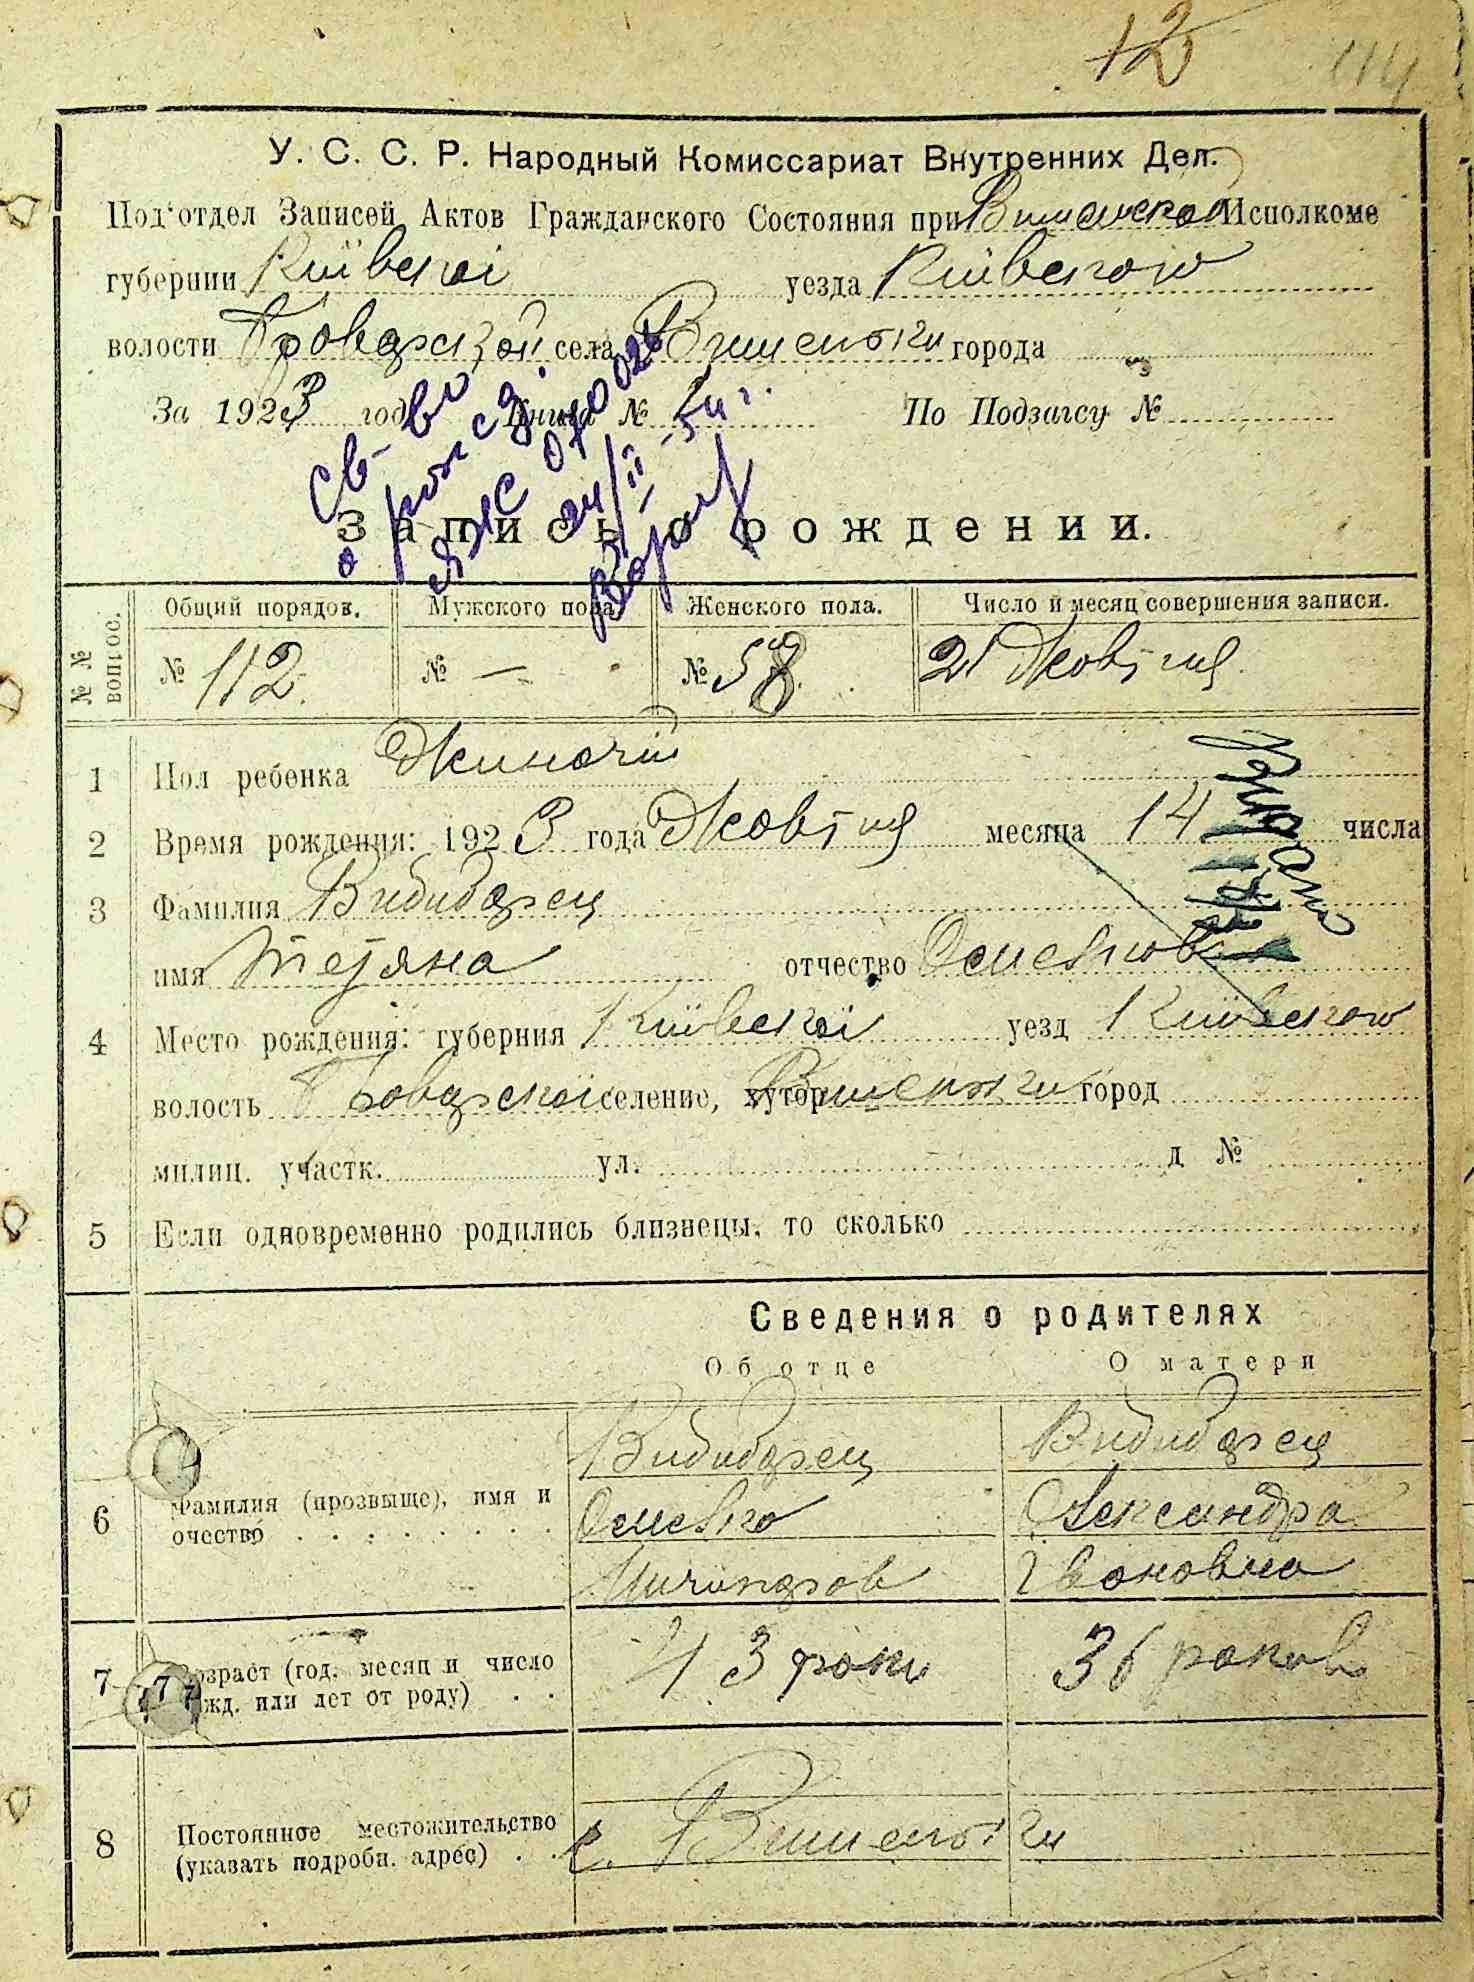 12
114
У. С. С. Р. Народный Комиссариат Внутренних Дел.
Под'отдел Записей Актов Гражданского Состояния при Исполкоме
губернии Київскої уезда Київского
волости Броварской села Вишеньки города
За 1923 год Книга № По Подзагсу №
Св-во
о рожд.
24/II-54 г.
Запись о рождении.
№ № вопрос. Общий порядов. Мужского пола. Женского пола. Число и месяц совершения записи.
№ 112. № — № 58 21 Жовтня.
1 Пол ребенка Жиночий
2 Время рождения: 1923 года Жовтня месяца 14 числа
3 Фамилия Видибарец
имя Тетяна отчество
4 Место рождения: губерния Київскої уезд Київского
волость Броварскої селение, хутор Вишеньки город
милиц. участк. ул. д №
5 Если одновременно родились близнецы, то сколько
Сведения о родителях
Об отце О матери
Видибарец Видибарец
6 Фамилия (прозвыще), имя и очество Александра
Ивановна
7 Возраст (год. месяц и число рожд. или лет от роду) 43 роки 36 роков
8 Постоянное местожительство (указать подробн. адрес) с. Вишеньки